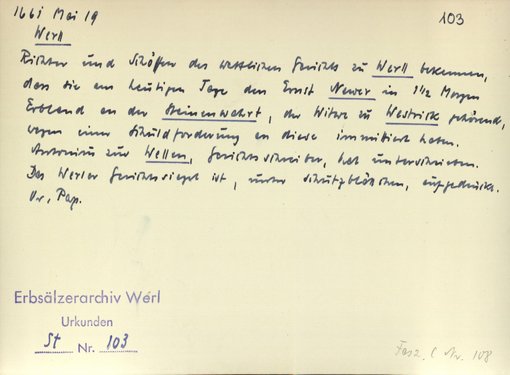 1661 Mai 19
103
Werl
Richter und Schöffen des weltlichen Gerichts zu Werll bekennen,
dass sie am heutigen Tage den Ernst Newer in 1 1/2 Morgen
Erbland an der Steinenwehrt, der Witwe zu Westrick gehörend,
wegen einer Schuldforderung an diese immitiert haben.
Antonius zur Wellen, Gerichtsschreiber, hat unterschrieben.
Das Werler Gerichtssiegel ist, unter Schutzblättchen, aufgedrückt.
Or., Pap.
Erbsälzerarchiv Werl
Urkunden
St Nr. 103
Fasz. C Nr. 108